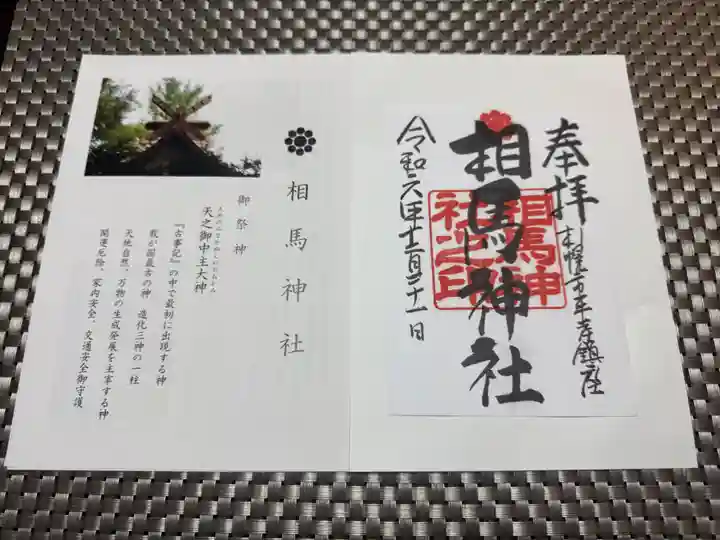 奉拝
札幌市平岸鎮座
相馬神社
相馬神社之印
令和六年十二月二十一日
相馬神社
御祭神
天之御中主大神
『古事記』の中で最初に出現する神
我が国最古の神 造化三神の一柱
天地自然、万物の生成発展を主宰する神
開運厄除、家内安全、交通安全御守護